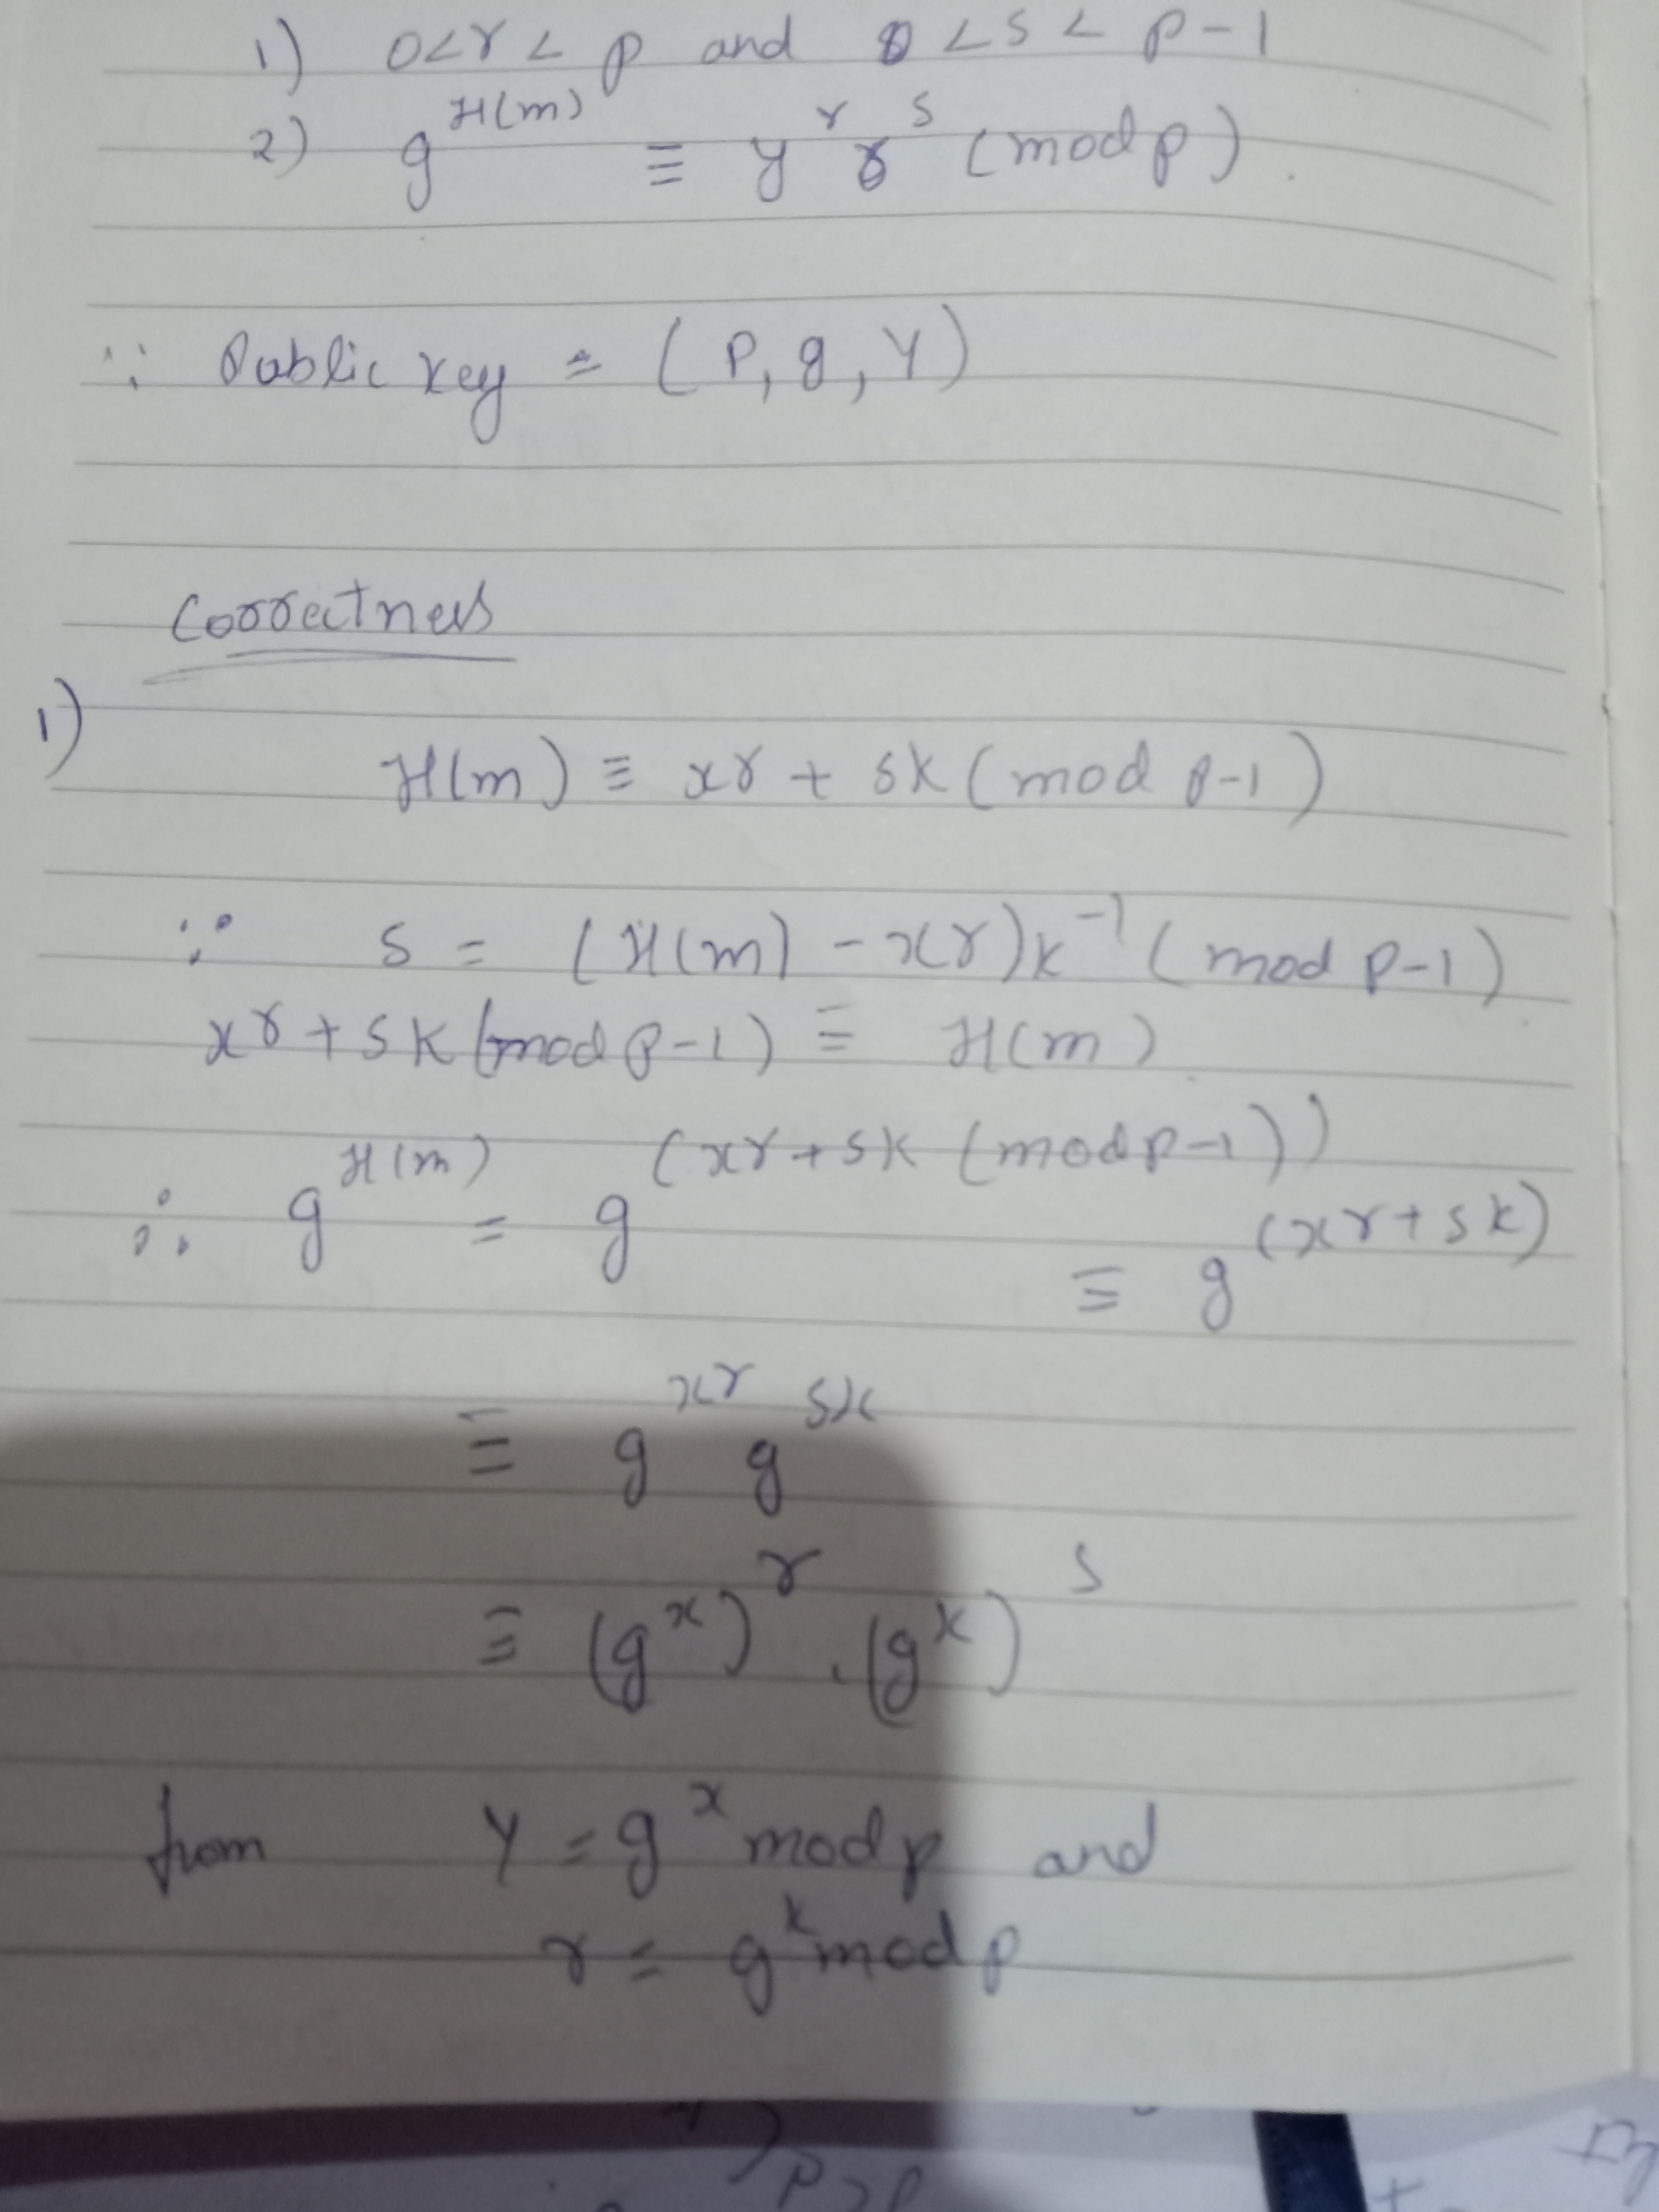 1) 0<r< p and 0 <s< p-1
2) g^H(m) ≡ y^r r^s (mod p).
∵ Public key = (P, g, Y)
Correctness
1)
H(m) ≡ xr + sk (mod p-1)
∵ s = (H(m) - xr)k^-1 (mod p-1)
xr + sk (mod p-1) ≡ H(m)
∴ g^H(m) = g^(xr+sk (mod p-1)) ≡ g^(xr+sk)
≡ g^xr g^sk
≡ (g^x)^r . (g^k)^s
from Y = g^x mod p and
r = g^k mod p